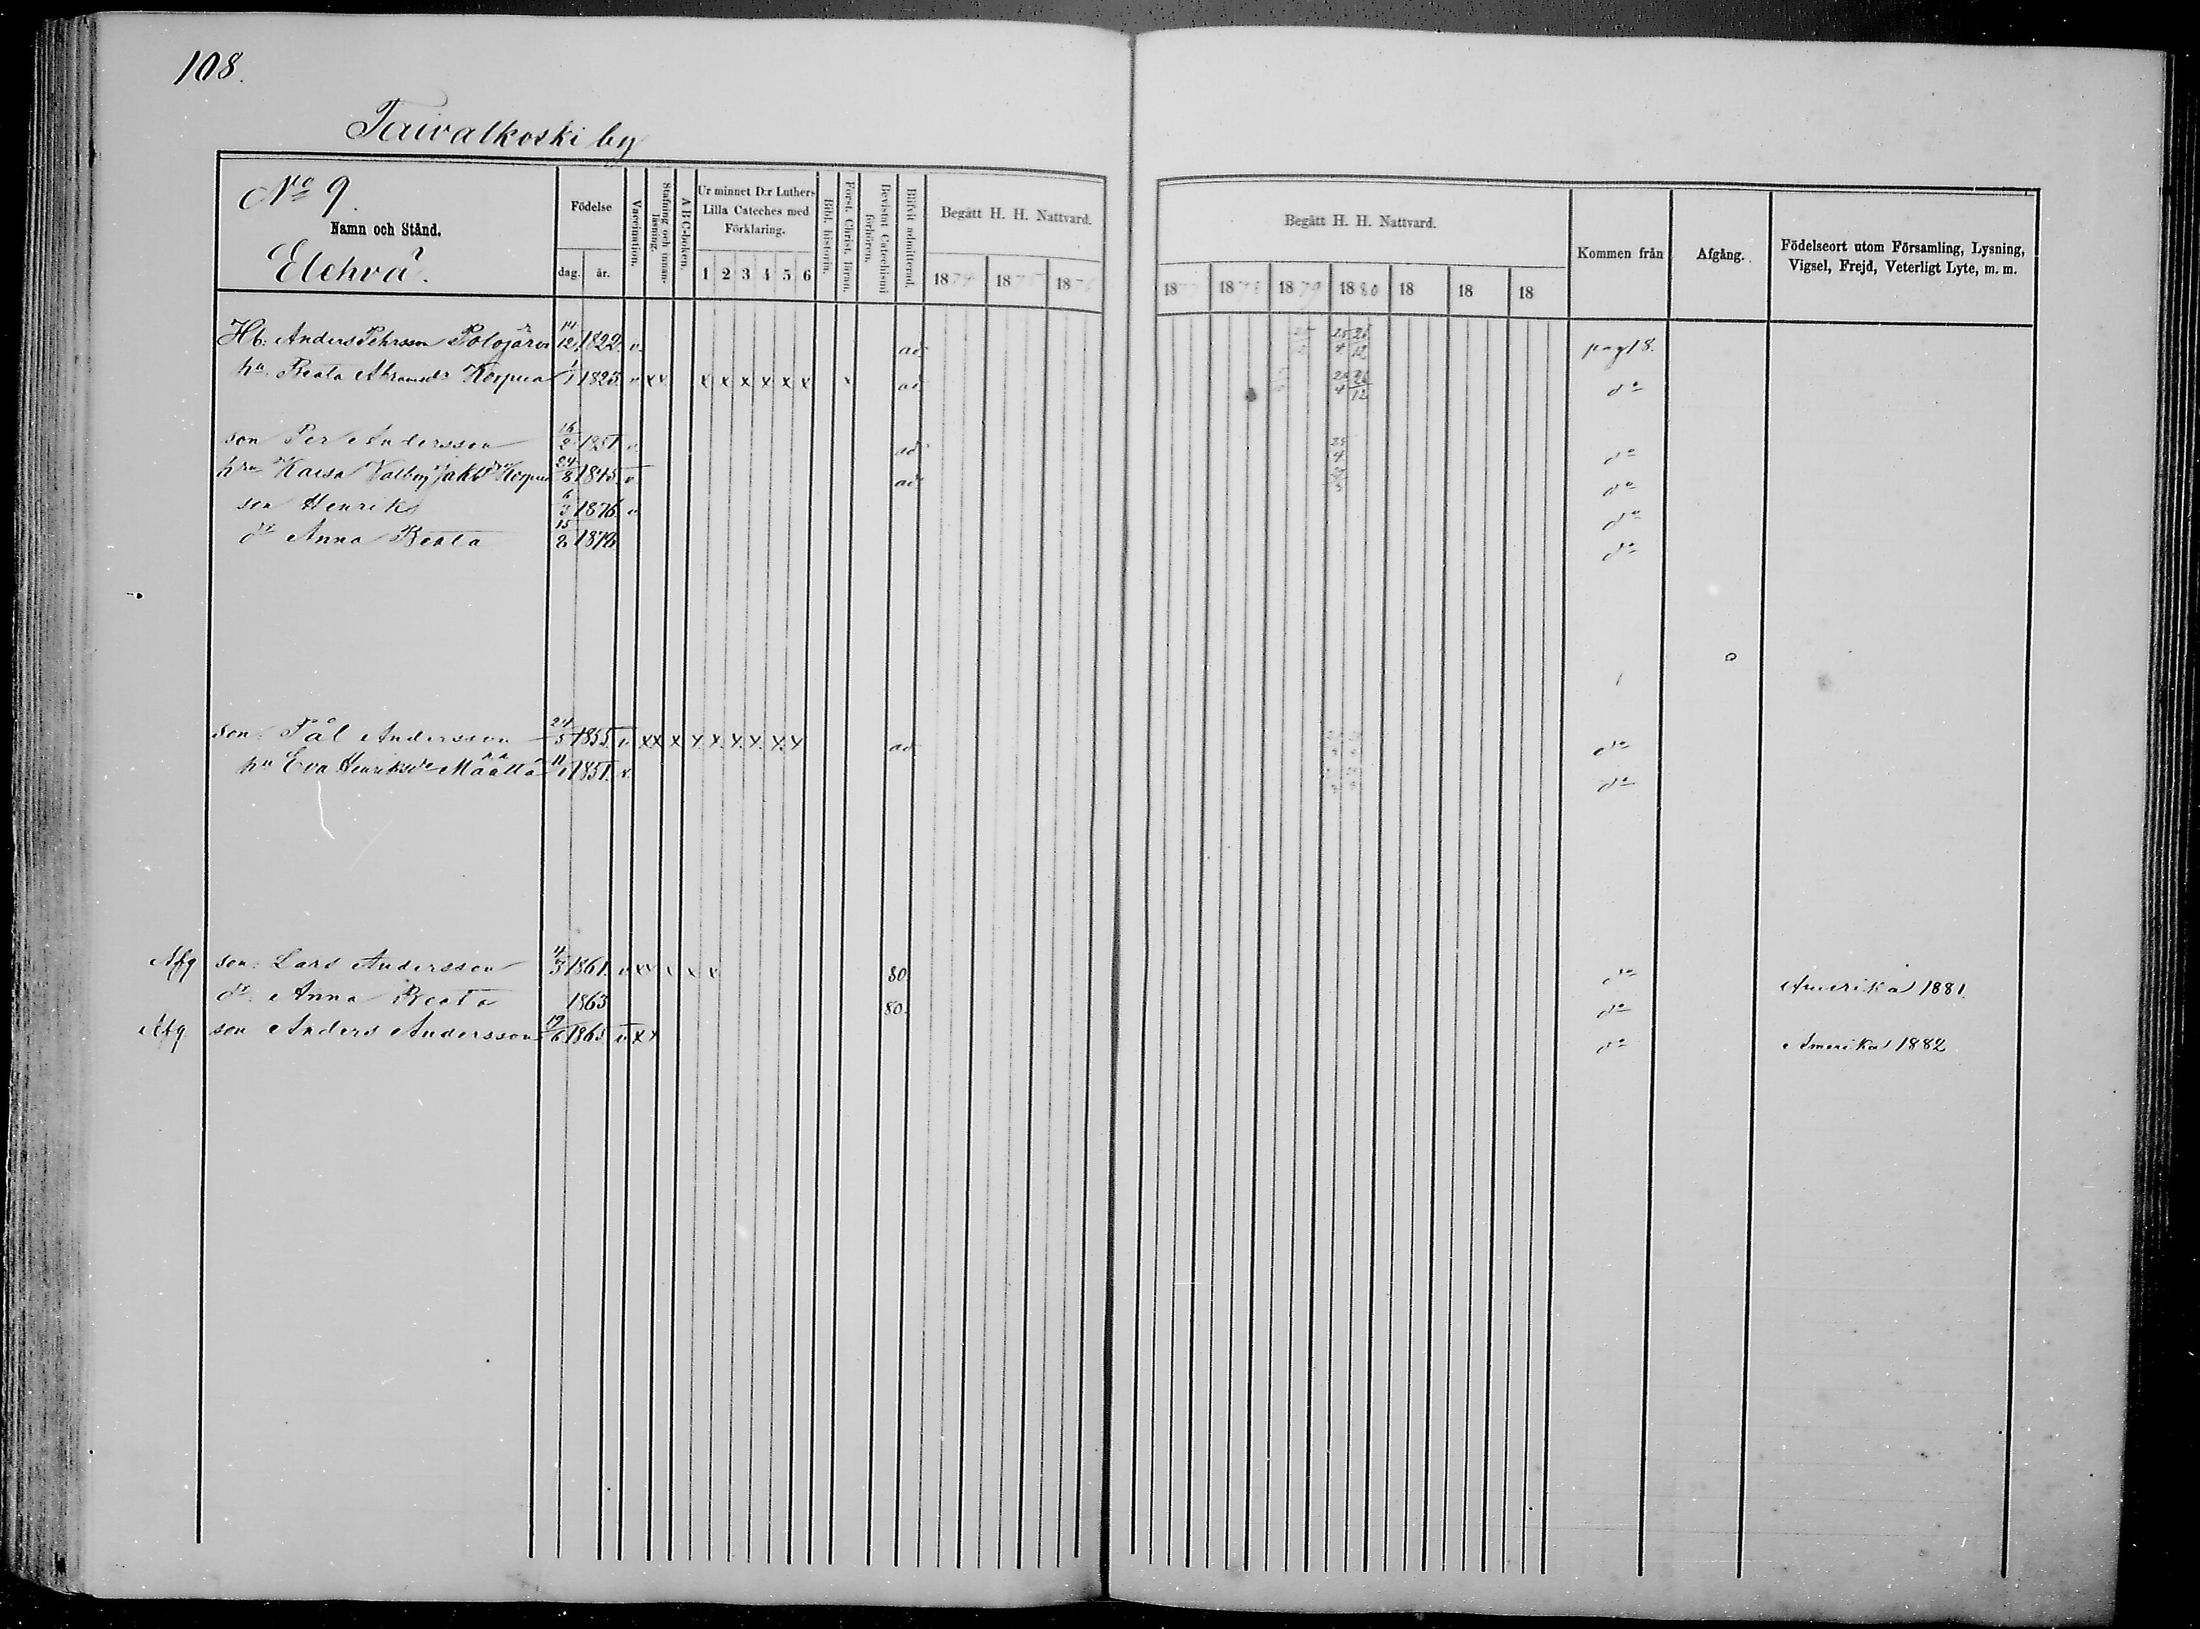 108.
Taivalkoski by
No 9.
Namn och Stånd.
Elehvä.
Födelse
dag. år.
Vaccination.
Stafning och innan-läsning.
A B C-boken.
Ur minnet D:r Luthers Lilla Cateches med Förklaring.
1 2 3 4 5 6
Bibl. historia.
Först. Christ. läran.
Bevistat Catechismi förhören.
Blifvit admitterad.
Begått H. H. Nattvard.
1874 1875 1876
Begått H. H. Nattvard.
1877 1878 1879 1880 18 18 18
Kommen från
Afgång.
Födelseort utom Församling, Lysning, Vigsel, Frejd, Veterligt Lyte, m. m.
Hb. Anders Pehrsson Polojärvi 14/12 1822. v. ad. 25/4 26/12 pag 18.
hu Beata Abramsdr Korpua 1/1 1825. v xx x x x x x x x ad 25/4 26/12 do
son Per Andersson 16/2 1851. v. ad. 25/4 do
hru Kaisa Valborg Jakobsdr Korpua 24/8 1845. v ad do
son Henrik 6/3 1876 v do
dr Anna Beata 15/2 1878 do
son. Pål Andersson 24/5 1855. v xx x x. x. x. x. x. x ad. do
hu Eva Henriksdr Määttä 11/1 1851. v. do
Afg son. Lars Andersson 4/3 1861. v xx x x x 80. do Amerika 1881.
dr. Anna Beata 1863 80. do
Afg son Anders Andersson 19/6 1865 v xx do Amerika 1882